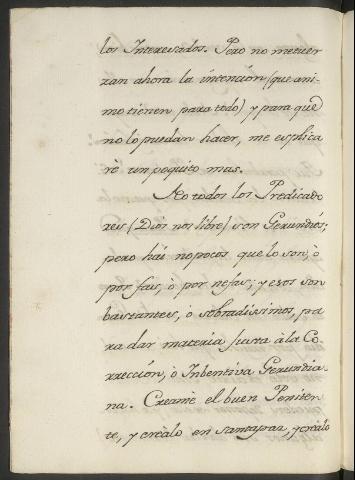 los Interesados. Pero no metuer
zan ahora la intención (que ani-
mo tienen para todo) y para que
no lo puedan hacer, me esplica
ré un poquito mas.
No todos los Predicado
res (Dios nos libre) son Gerundios;
pero hái no pocos que lo son, ò
por fas, ò por nefas; y esos son
bastantes, ò sobradissimos, pa
ra dar materia justa à la Co
rrección, ò Inbentiva Gerundia
na. Creame el buen Peniten
te, y creàlo en santa paz, y crèalo